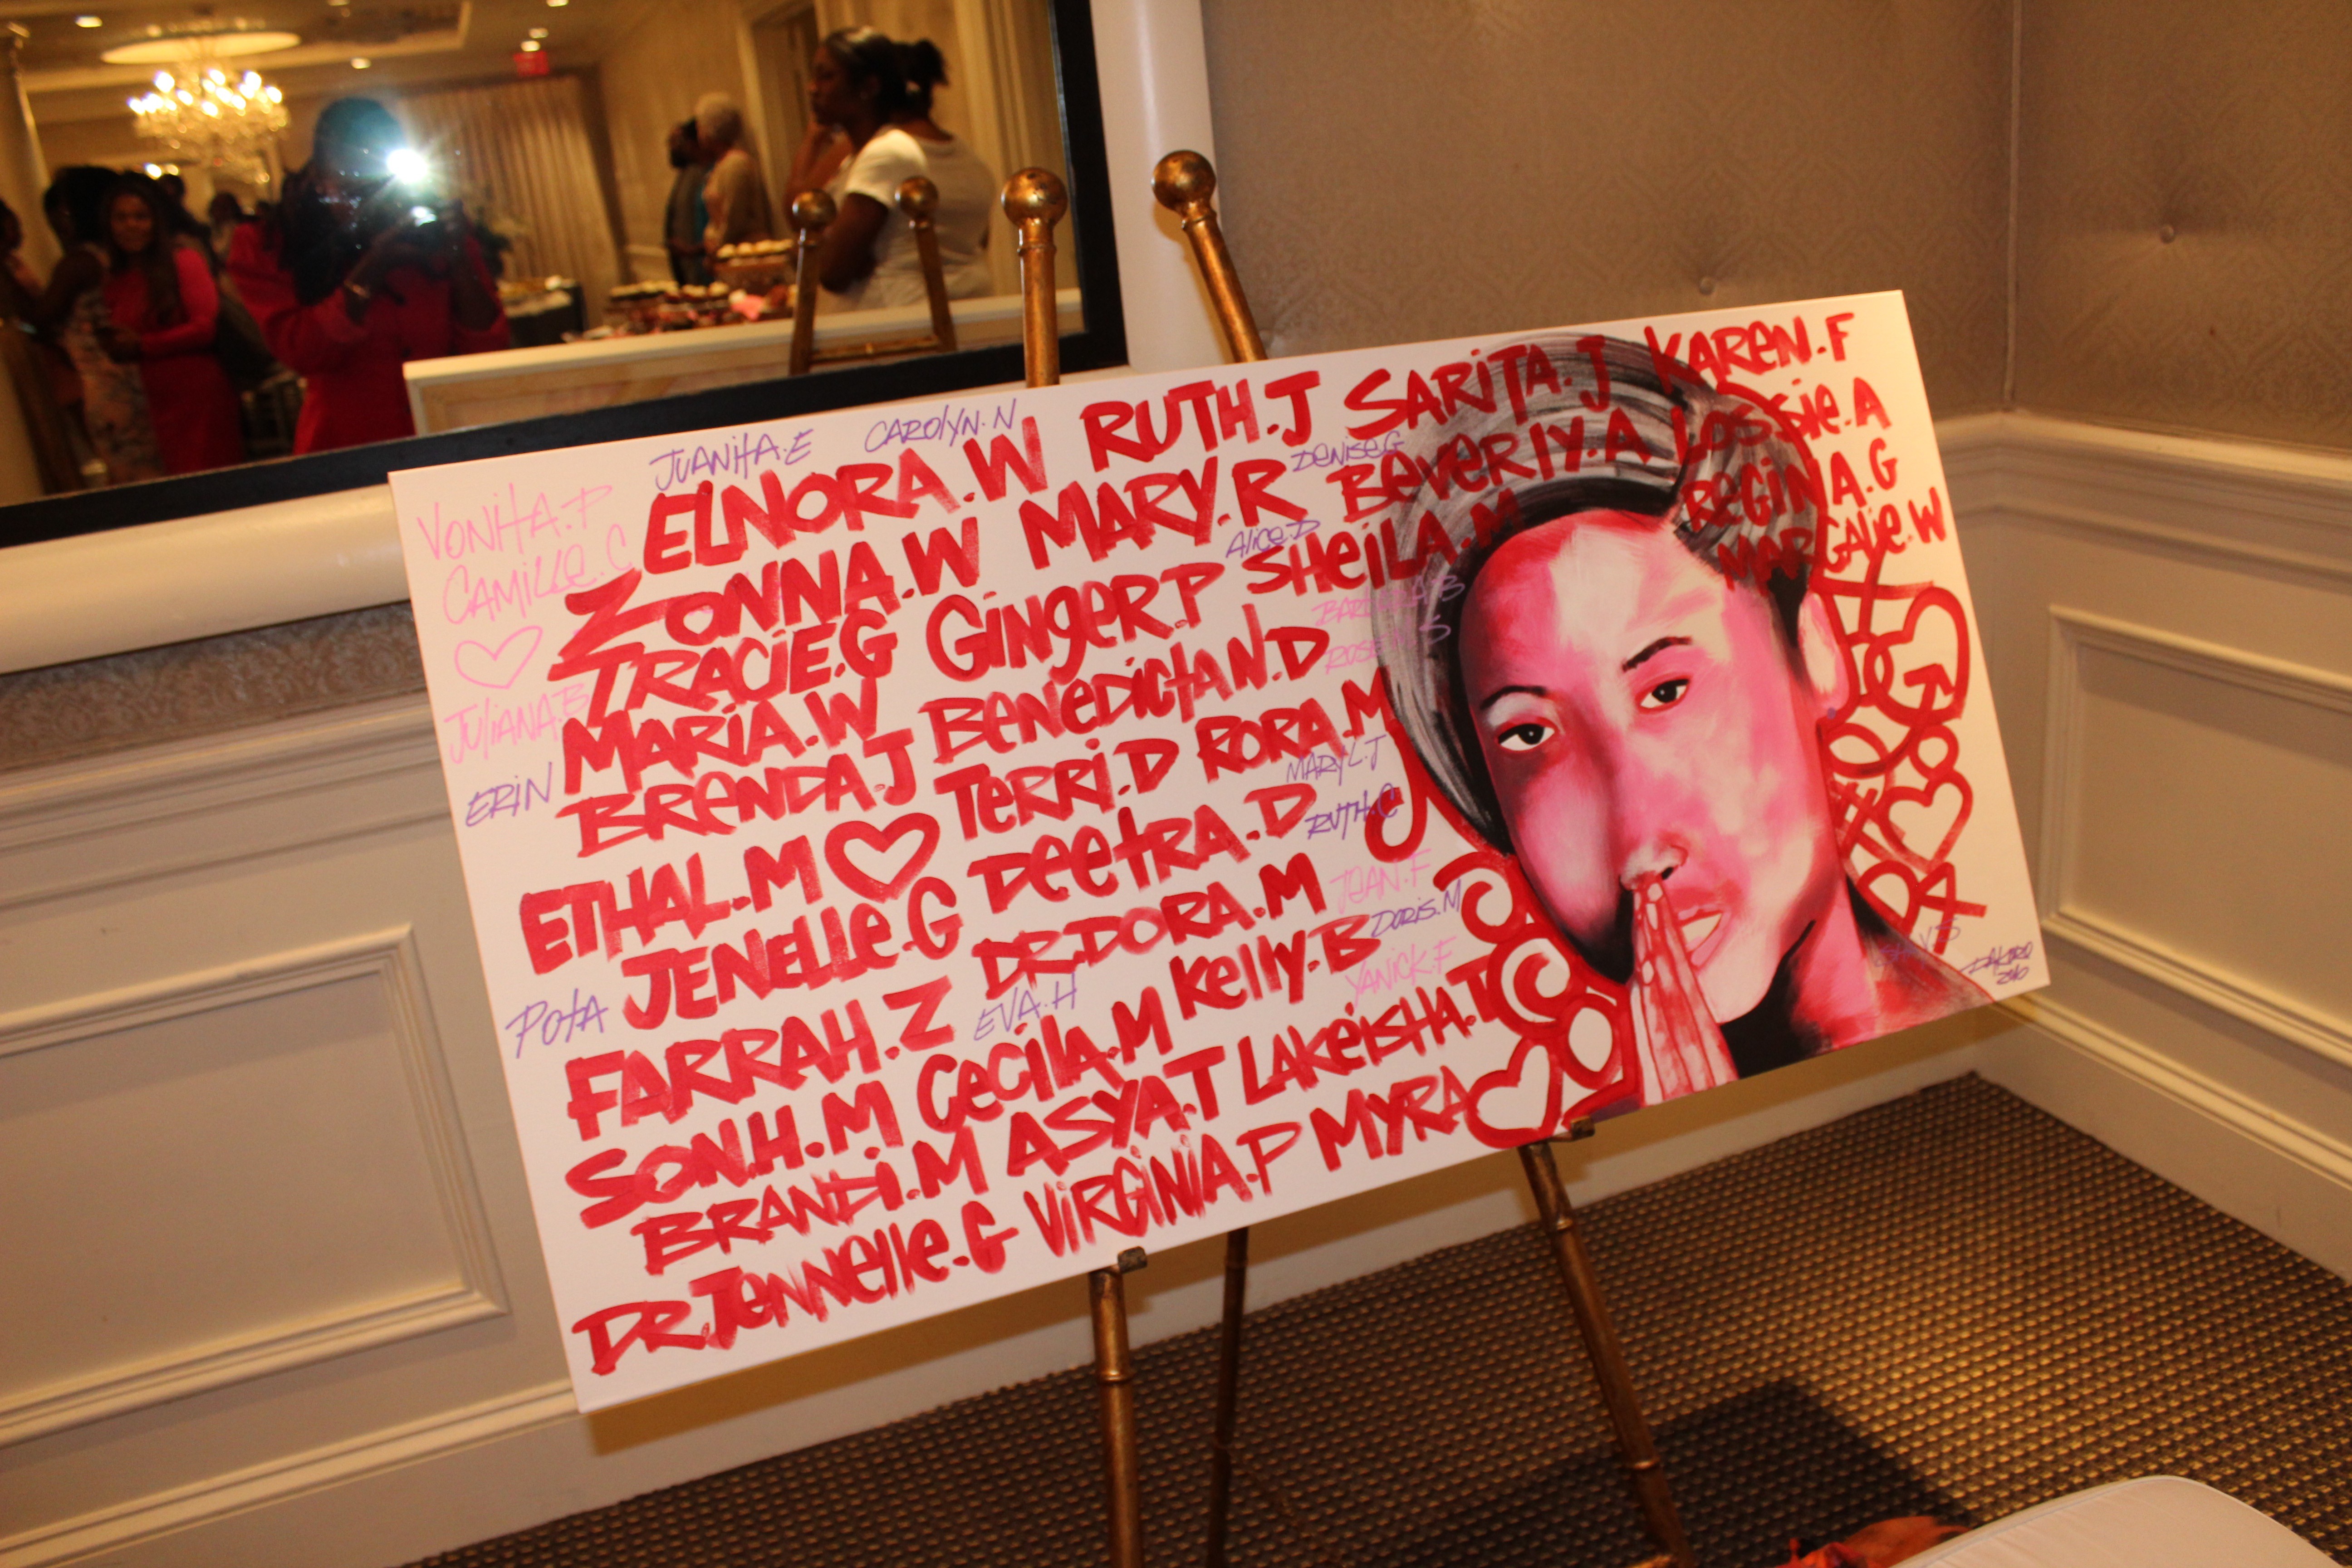 JUANITA.E CAROLYN.N
VONITA.P
CAMILLE.C
JULIANA.B
ERIN
POTA
ELNORA.W RUTH.J SARITA.J KAREN.F
DENISE.G
ZONNA.W MARY.R BEVERLY.A LOSSIE.A
Alice.D
TRACIE.G GINGER.P SHEILA.M REGINA.G
MARGALIE.W
MARIA.W BENEDICTA N.D
BRENDA.J TERRI.D RORA.M
MARY L.J
RUTH.C
ETHAL.M DEETRA.D
JEAN.F
JENELLE.G DR.DORA.M
DORIS.M
YANICK.F
FARRAH.Z
EVA.H
SON.H.M CECILA.M KELLY.B
BRANDI.M ASYA.T LAKEISHA.T
DR.JENNELLE.G VIRGINIA.P MYRA